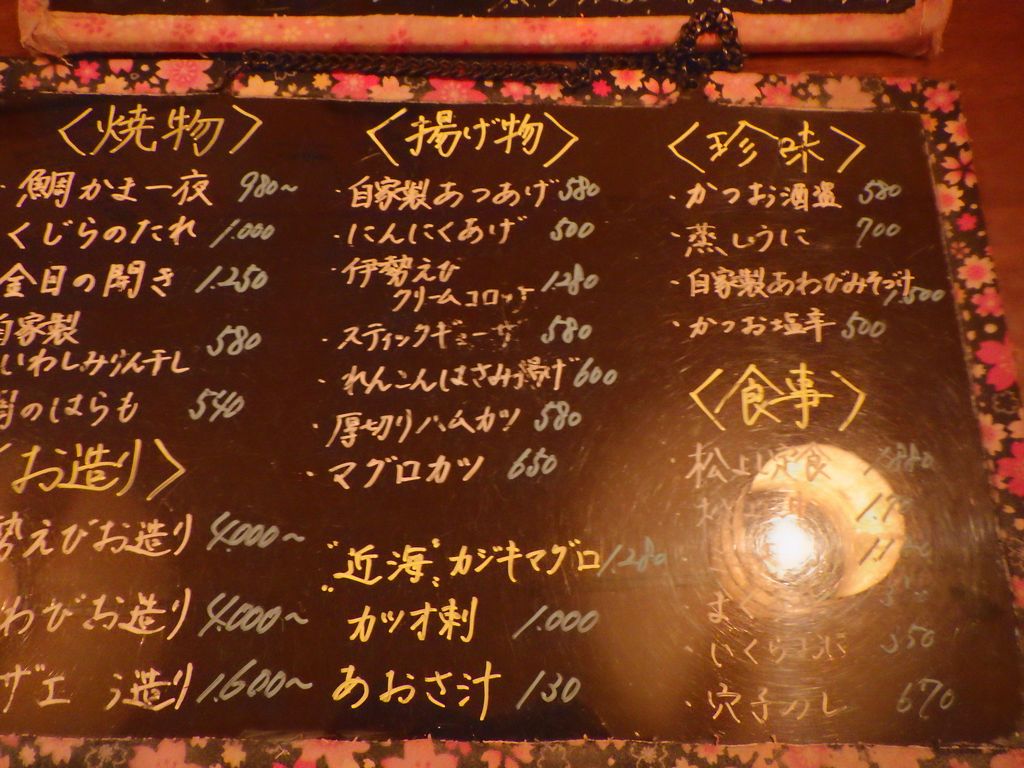 〈焼物〉
・鯛かま一夜 980~
くじらのたれ 1.000
金目の開き 1.250
自家製
いわしみりん干し 580
のはらも 540
〈お造り〉
勢えびお造り 4.000~
わびお造り 4.000~
ザエ 造り 1.600~
〈揚げ物〉
・自家製あつあげ 580
・にんにくあげ 500
・伊勢えび
クリームコロッケ 1.280
・スティックギョーザ 580
・れんこんはさみ揚げ 600
・厚切りハムカツ 580
・マグロカツ 650
"近海"カジキマグロ 1.280
カツオ刺 1.000
あおさ汁 130
〈珍味〉
・かつお酒盗 580
・蒸しうに 700
・自家製あわびみそづけ 1.500
・かつお塩辛 500
〈食事〉
・松上定食
・いくら 350
・穴子のし 670